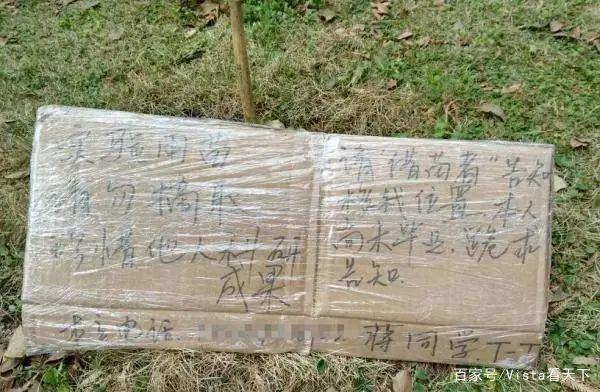 实验用苗
请勿摘取
珍惜他人科研
成果
请借苗者“告知
移栽位置、本人
尚未毕业、跪求
告知.
苗主电话: 蒋同学.T-T
百家号/Vista看天下